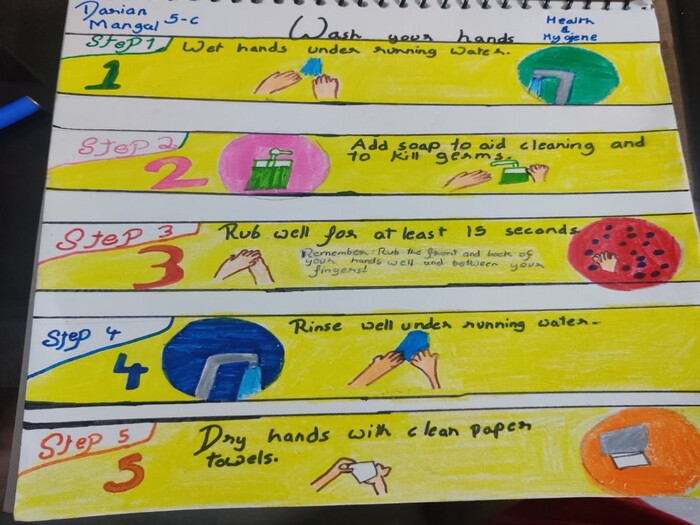 Darian Mangal 5-C
Wash your hands
Health
&
Hygiene
Step 1
1
Wet hands under running water.
Step 2
2
Add soap to aid cleaning and
to kill germs.
Step 3
3
Rub well for at least 15 seconds
Remember: Rub the front and back of
your hands well and between your
fingers!
Step 4
4
Rinse well under running water.
Step 5
5
Dry hands with clean paper
towels.